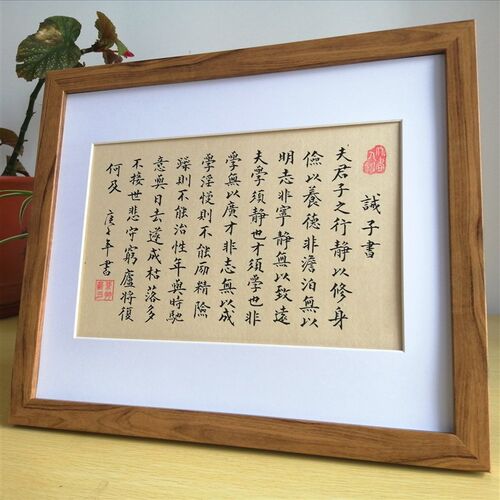 誡子書
夫君子之行静以修身
儉以養德非澹泊無以
明志非寧静無以致遠
夫學須静也才須學也非
學無以廣才非志無以成
學淫慢則不能励精險
躁則不能治性年與時馳
意與日去遂成枯落多
不接世悲守窮廬將復
何及 庚子年書